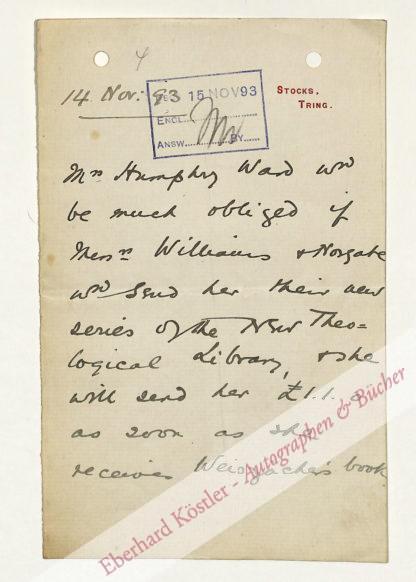 4
14 Nov: 93
REC. 15 NOV 93
ENCL.
ANSW. BY
STOCKS,
TRING.
Mrs Humphry Ward wd
be much obliged if
Messrs Williams & Norgate
wd send her their new
series of the New Theo=
logical Library, & she
will send her £1.1.
as soon as she
receives Weizsäcker's book
Eberhard Köstler - Autographen & Bücher